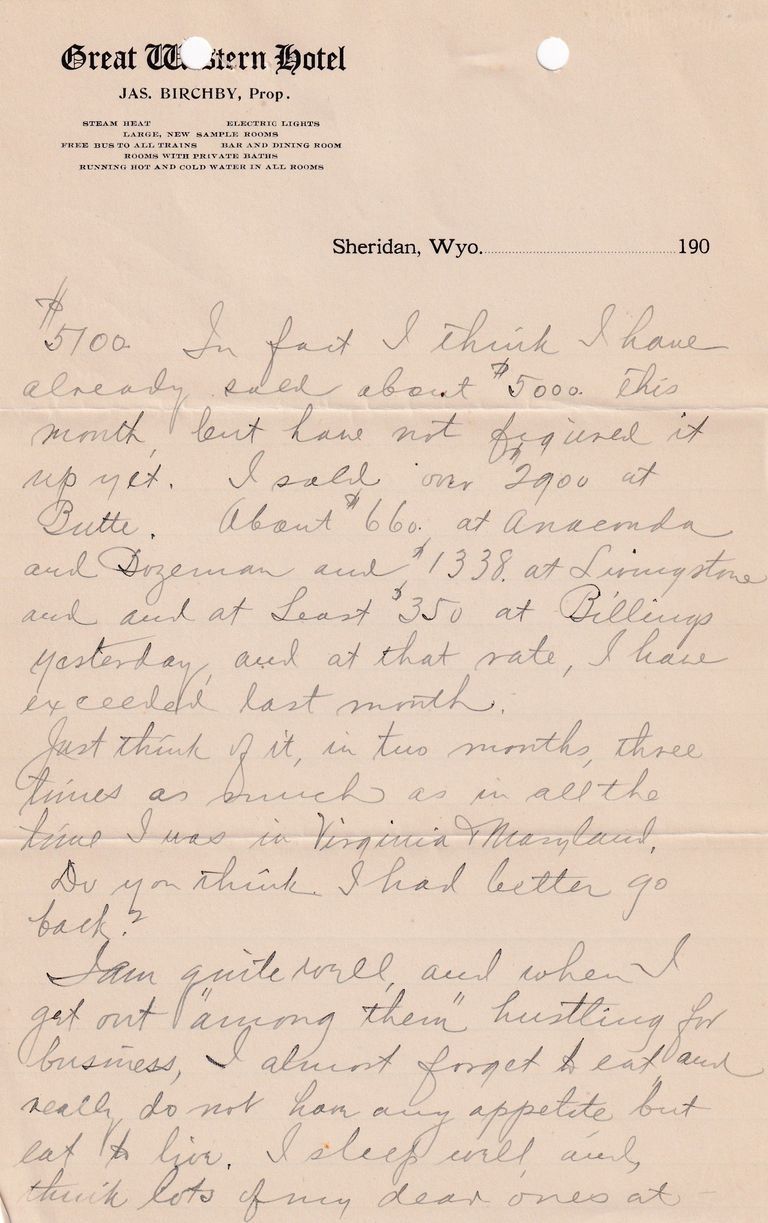 Great Western Hotel
JAS. BIRCHBY, Prop.
STEAM HEAT ELECTRIC LIGHTS
LARGE, NEW SAMPLE ROOMS
FREE BUS TO ALL TRAINS BAR AND DINING ROOM
ROOMS WITH PRIVATE BATHS
RUNNING HOT AND COLD WATER IN ALL ROOMS
Sheridan, Wyo. 190
$5100. In fact I think I have
already sold about $5000. this
month, but have not figured it
up yet. I sold over $2900 at
Butte. About $660. at Anaconda
and Bozeman and $1338. at Livingstone
and and at Least $350 at Billings
yesterday, and at that rate, I have
exceeded last month.
Just think of it, in two months, three
times as much as in all the
time I was in Virginia & Maryland.
Do you think I had better go
back?
I am quite well, and when I
get out "among them" hustling for
business, I almost forget to eat, and
really do not have any appetite but
eat to live. I sleep well and,
think lots of my dear ones at